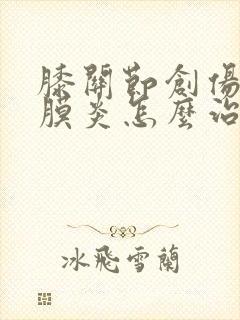 膝關節創傷
膜炎怎麼治
冰飛雪蘭